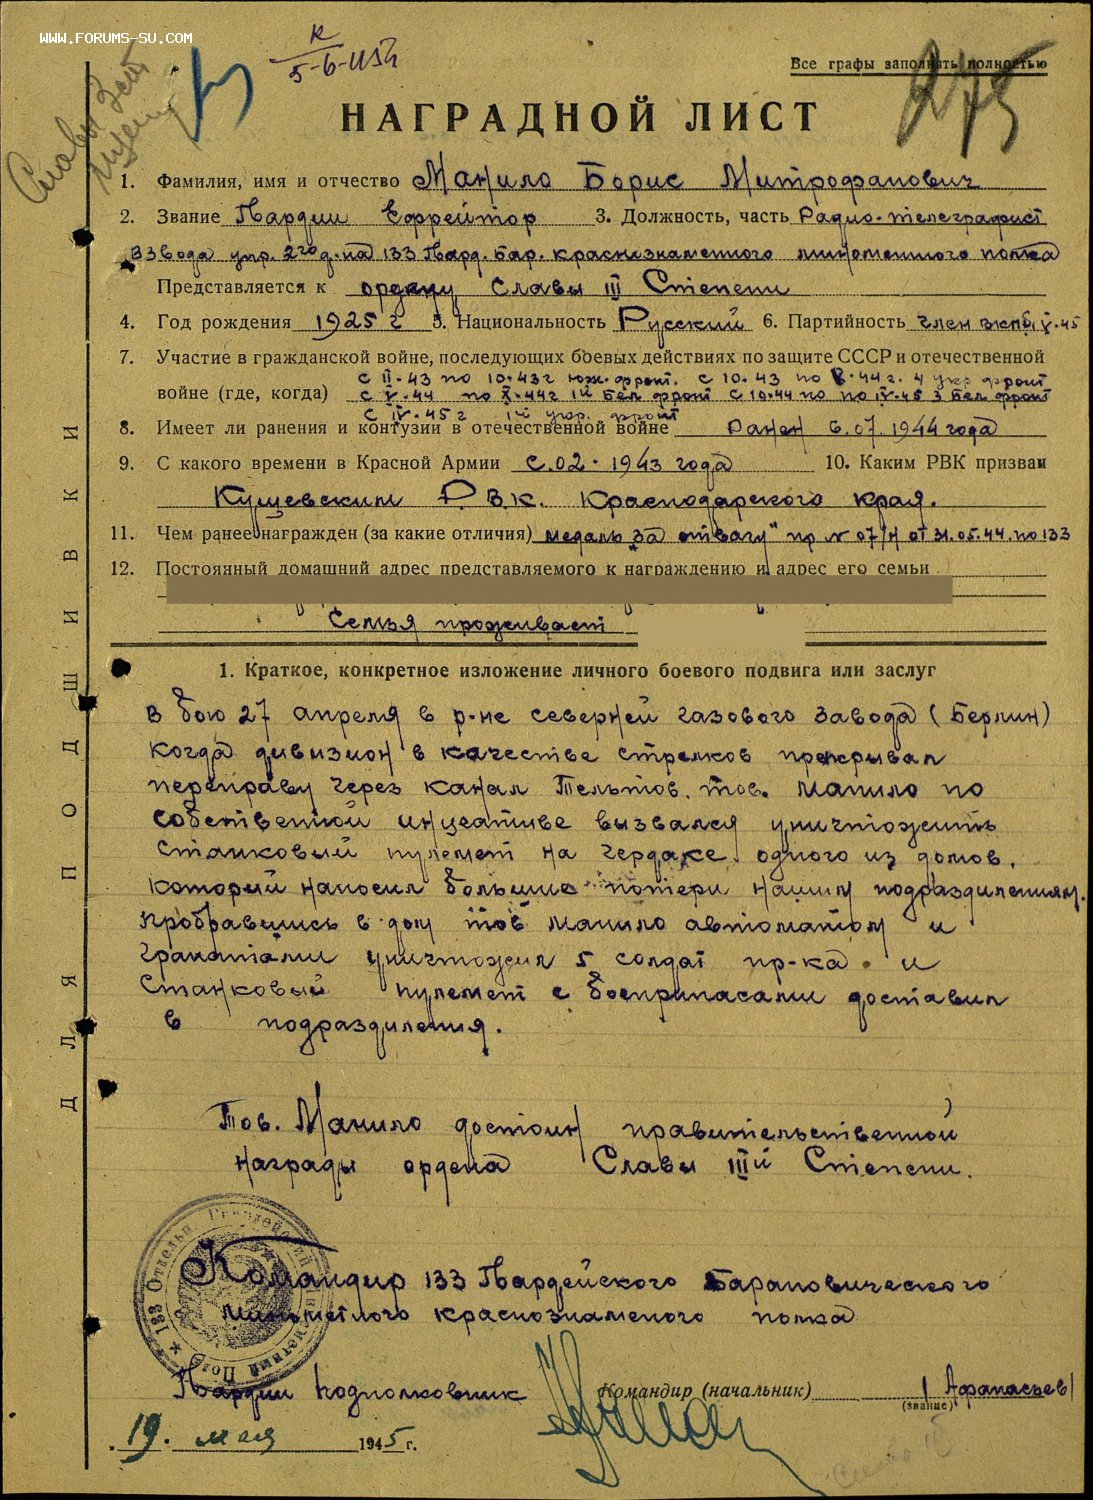 WWW.FORUMS-SU.COM
Славы 3 ст
5-6-45г
Все графы заполнять полностью
275
НАГРАДНОЙ ЛИСТ
1. Фамилия, имя и отчество Манило Борис Митрофанович
2. Звание Гвардии Ефрейтор 3. Должность, часть Радио-телеграфист
взвода упр. 2го д-на 133 Гвард. Бар. краснознаменного минометного полка
Представляется к ордену Славы III Степени
4. Год рождения 1925 г 5. Национальность Русский 6. Партийность член вкпб, V.45
7. Участие в гражданской войне, последующих боевых действиях по защите СССР и отечественной
с II.43 по 10.43г юж. фронт. с 10.43 по V.44г. 4 укр фронт
войне (где, когда) с V.44 по X.44г 1й бел фронт с 10.44 по по IV.45 3 Бел. фронт
с IV.45г 1й укр. фронт
8. Имеет ли ранения и контузии в отечественной войне Ранен 6.07.1944 года
9. С какого времени в Красной Армии с.02.1943 года 10. Каким РВК призван
Кущевским Р.В.К. Краснодарского края.
11. Чем ранее награжден (за какие отличия) медаль „За отвагу" пр № 07/н от 31.05.44. по 133
12. Постоянный домашний адрес представляемого к награждению и адрес его семьи
Семья проживает
1. Краткое, конкретное изложение личного боевого подвига или заслуг
В бою 27 апреля в р-не северней газового завода (Берлин)
когда дивизион в качестве стрелков прикрывал
переправу через канал Тельтов. тов. Манило по
собственной инцеативе вызвался уничтожить
станковый пулемет на чердаке одного из домов.
который наносил большие потери нашим подразделениям.
Пробравшись в дом тов Манило автоматом и
гранатами уничтожил 5 солдат пр-ка и
Станковый пулемет с боеприпасами доставил
в подразделения.
Тов. Манило достоин правительственной
награды ордена Славы IIIй Степени.
Командир 133 Гвардейского Барановического
минометного краснознаменого полка
Гвардии подполковник Командир (начальник) / Афанасьев /
(звание)
19. мая 1945 г.
ДЛЯ ПОДШИВКИ
★ 133 Отдельн. Гвардейский Минометный Полк